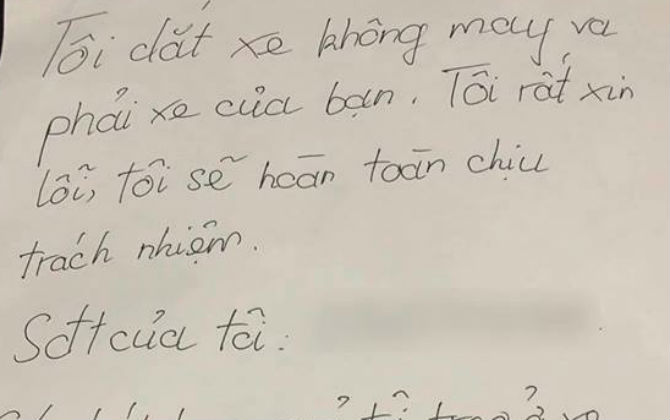 Tôi dắt xe không may va
phải xe của bạn. Tôi rất xin
lỗi, tôi sẽ hoàn toàn chịu
trách nhiệm.
Sđt của tôi: